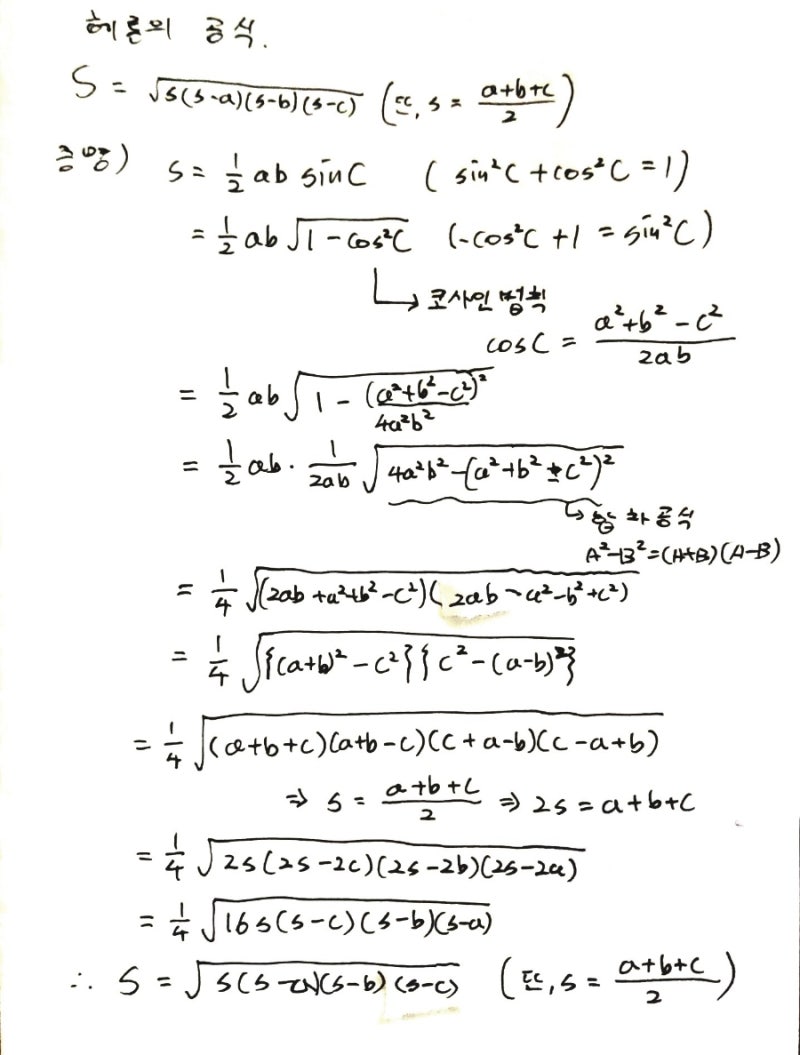 헤론의 공식.
S = √s(s-a)(s-b)(s-c) (단, s = (a+b+c)/2)
증명) S = 1/2 ab sinC (sin²C + cos²C = 1)
= 1/2 ab √1 - cos²C (-cos²C + 1 = sin²C)
↳ 코사인 법칙
cosC = (a²+b²-c²)/2ab
= 1/2 ab √1 - (a²+b²-c²)²/4a²b²
= 1/2 ab · 1/2ab √4a²b² - (a²+b²-c²)²
↳ 합차 공식
A²-B² = (A+B)(A-B)
= 1/4 √(2ab+a²+b²-c²)(2ab-a²-b²+c²)
= 1/4 √{(a+b)²-c²}{c²-(a-b)²}
= 1/4 √(a+b+c)(a+b-c)(c+a-b)(c-a+b)
⇒ s = (a+b+c)/2 ⇒ 2s = a+b+c
= 1/4 √2s(2s-2c)(2s-2b)(2s-2a)
= 1/4 √16s(s-c)(s-b)(s-a)
∴ S = √s(s-a)(s-b)(s-c) (단, s = (a+b+c)/2)